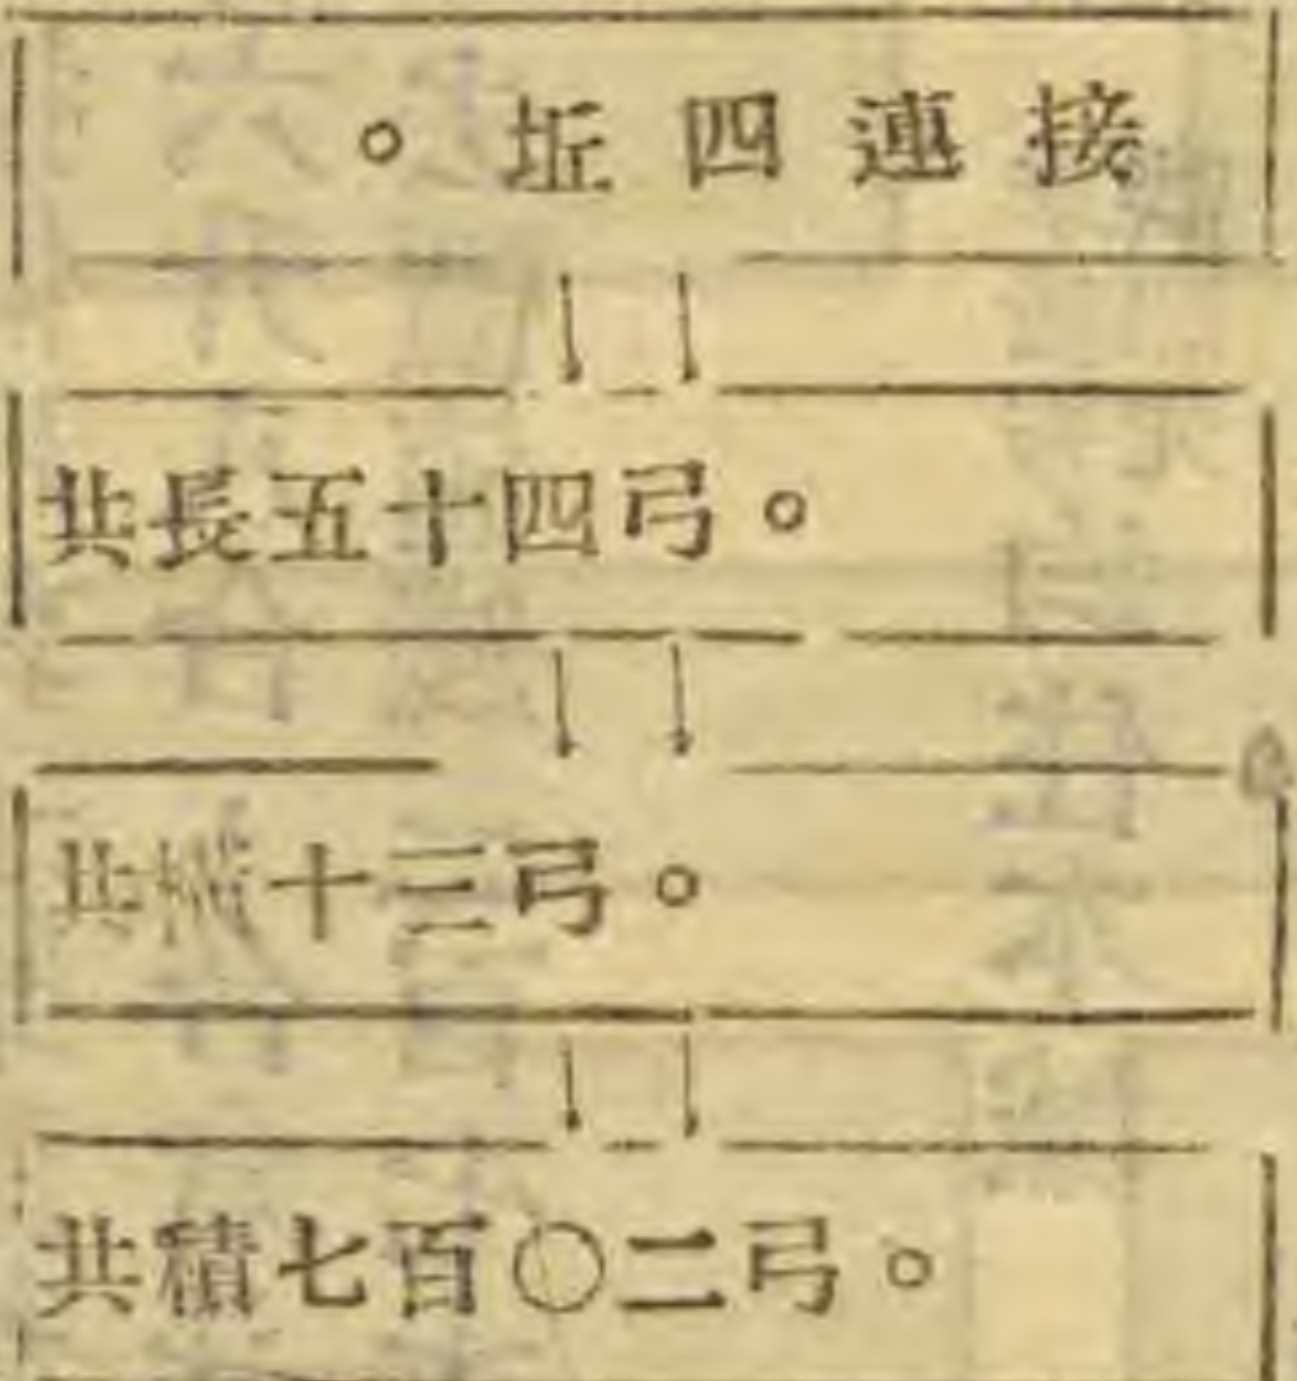 接連四坵。
共長五十四弓。
共橫十三弓。
共積七百〇二弓。